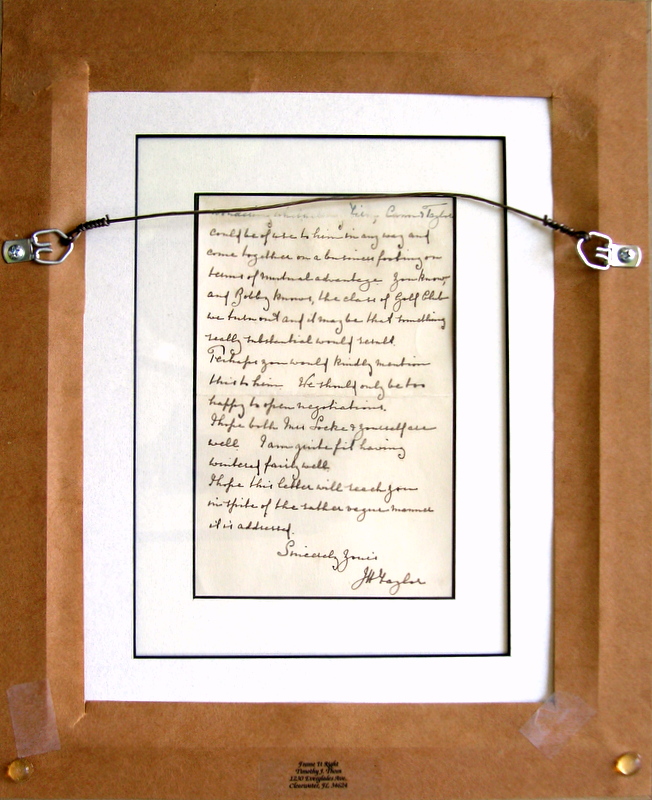 wondering whether my Firm, Cann & Taylor
could be of use to him in any way and
come together on a business footing on
terms of mutual advantage. You know,
and Bobby knows, the class of Golf Club
we turn out and it may be that something
really substantial would result.
Perhaps you would kindly mention
this to him We should only be too
happy to open negotiations.
I hope both Mrs Locke & yourself are
well I am quite fit having
wintered fairly well.
I hope this letter will reach you
in spite of the rather vague manner
it is addressed.
Sincerely Yours
JH Taylor
Frame It Right
Timothy J. Thoen
2230 Everglades Ave.
Clearwater, FL